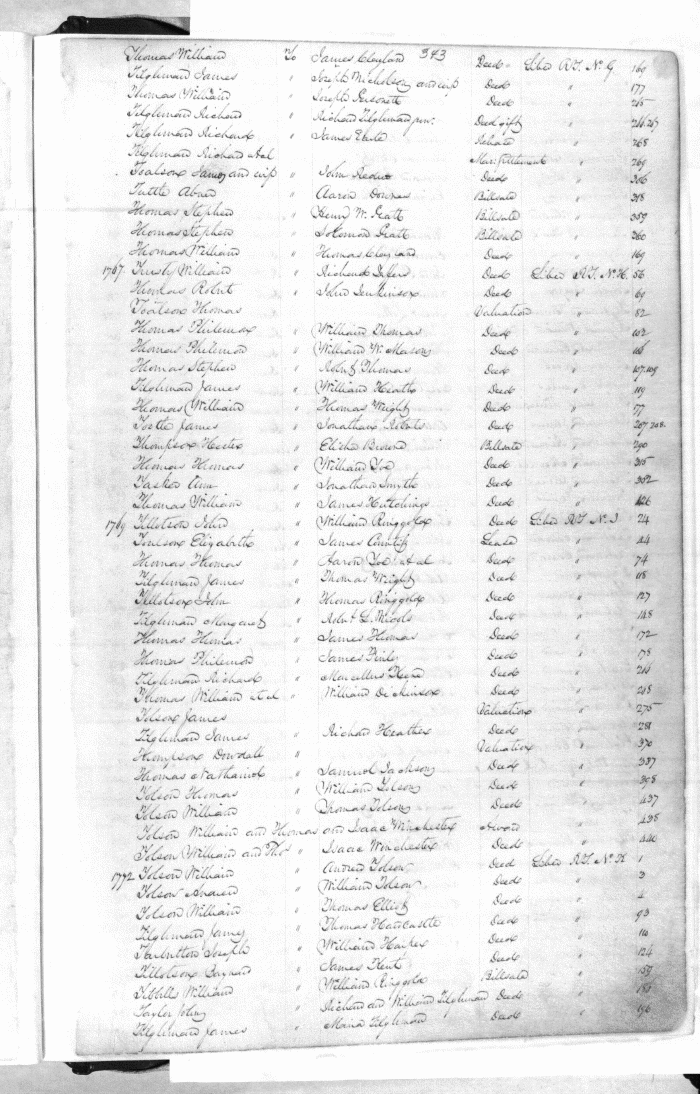 343
Thomas William To James Clayland Deed Liber R.T. No. G. 169
Tilghman James " Joseph Nicholson and wife Deed " 177
Thomas William " Joseph Deed " 245
Tilghman Richard " Richard Tilghman junr. Deed gift " 246 247
Tilghman Richard " James Earle Release " 268
Tilghman Richard et al Mar. settlement " 269
Toalson James and wife " John Deed " 306
Tuttle Abner " Aaron Downes Billsale " 318
Thomas Stephen " Henry W. Billsale " 359
Thomas Stephen " Solomon Billsale " 360
Thomas William " Thomas Clayland Deed " 169
1767 William " Richard Deed Liber R.T. No. H. 56
Thomas Robert " John Jenkinson Deed " 69
Toalson Thomas Valuation " 82
Thomas Philemon " William Thomas Deed " 102
Thomas Philemon " William W. Mason Deed "
Thomas Stephen " Robert Thomas Deed " 107.109
Tilghman James " William Heath Deed " 119
Thomas William " Thomas Wright Deed " 77
James " Jonathan Roberts Deed " 207 208
Thompson Hester " Elisha Browne Billsale " 290
Thomas Thomas " William Yoe Deed " 315
Tasker Ann " Jonathan Smyth Deed " 352
Thomas William " James Hutchings Deed " 126
1769 Tillotson John " William Ringgold Deed Liber R.T. No. I 24
Toulson Elizabeth " James Lease " 44
Thomas Thomas " Aaron Yoe et al Deed " 74
Tilghman James " Thomas Wright Deed " 118
Tillotson John " Thomas Ringgold Deed " 127
Tilghman Margaret " Robt. L. Nicols Deed " 148
Thomas Thomas " James Thomas Deed " 172
Thomas Philemon " James Finley Deed " 178
Tilghman Richard " Marcellus Keene Deed " 210
Thomas William et al " William Dickinson Deed " 218
Tolson James Valuation " 275
Tilghman James " Richard Heather Deed " 281
Thompson Dowdall Valuation " 370
Thomas Nathaniel " Samuel Jackson Deed " 387
Tolson Thomas " William Tolson Deed " 398
Tolson William " Thomas Tolson Deed " 437
Tolson William and Thomas and Isaac Winchester Award " 438
Tolson William and Thos " Isaac Winchester Deed " 440
1772 Tolson William " Andrew Tolson Deed Liber R.T. No. K 1
Tolson Andrew " William Tolson Deed " 3
Tolson William " Thomas Elliott Deed " 4
Tilghman James " Thomas Hardcastle Deed " 93
Tharbutton Joseph " William Deed " 110
Tillotson " James Kent Deed " 124
Tibbills William " William Ringgold Billsale " 159
Taylor John " Richard and William Tilghman Deed "
Tilghman James " Maria Tilghman Deed " 196